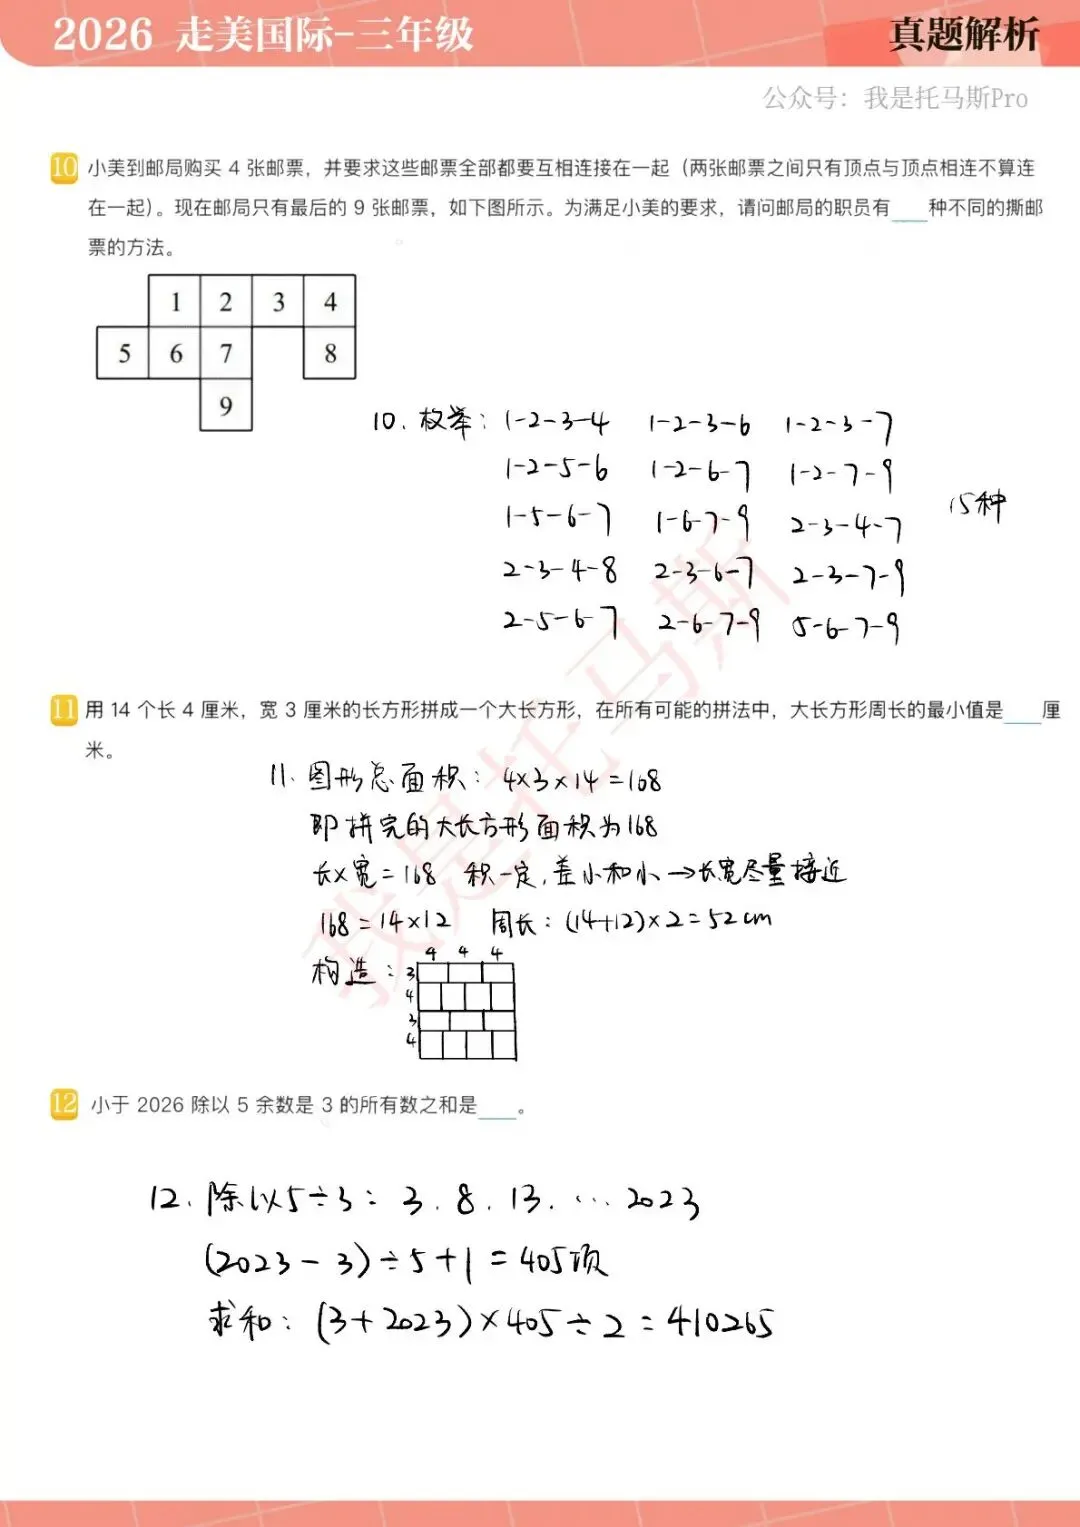 2026 走美国际-三年级
真题解析
公众号：我是托马斯Pro
10 小美到邮局购买 4 张邮票，并要求这些邮票全部都要互相连接在一起（两张邮票之间只有顶点与顶点相连不算连
在一起）。现在邮局只有最后的 9 张邮票，如下图所示。为满足小美的要求，请问邮局的职员有____种不同的撕邮
票的方法。
1 2 3 4
5 6 7 8
9
10. 枚举: 1-2-3-4 1-2-3-6 1-2-3-7
1-2-5-6 1-2-6-7 1-2-7-9
1-5-6-7 1-6-7-9 2-3-4-7 15种
2-3-4-8 2-3-6-7 2-3-7-9
2-5-6-7 2-6-7-9 5-6-7-9
我是托马斯
11 用 14 个长 4 厘米，宽 3 厘米的长方形拼成一个大长方形，在所有可能的拼法中，大长方形周长的最小值是____厘
米。
11. 图形总面积: 4×3×14=168
即拼完的大长方形面积为168
长×宽=168 积一定,差小和小→长宽尽量接近
168=14×12 周长: (14+12)×2=52cm
构造: 4 4 4
3
4
3
4
12 小于 2026 除以 5 余数是 3 的所有数之和是____。
12. 除以5÷3: 3. 8. 13. … 2023
(2023-3)÷5+1=405项
求和: (3+2023)×405÷2=410265